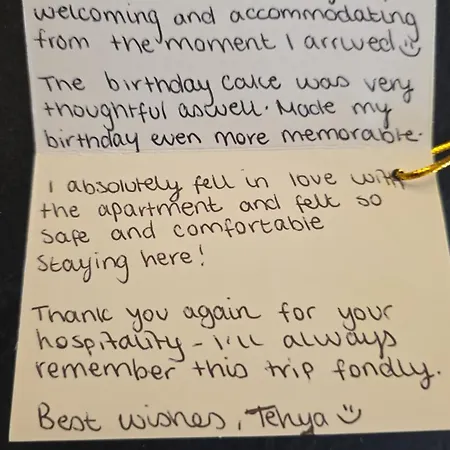 welcoming and accommodating
from the moment I arrived
The birthday cake was very
thoughtful aswell. Made my
birthday even more memorable.
I absolutely fell in love with
the apartment and felt so
safe and comfortable
staying here!
Thank you again for your
hospitality - I'll always
remember this trip fondly.
Best wishes, Tehya